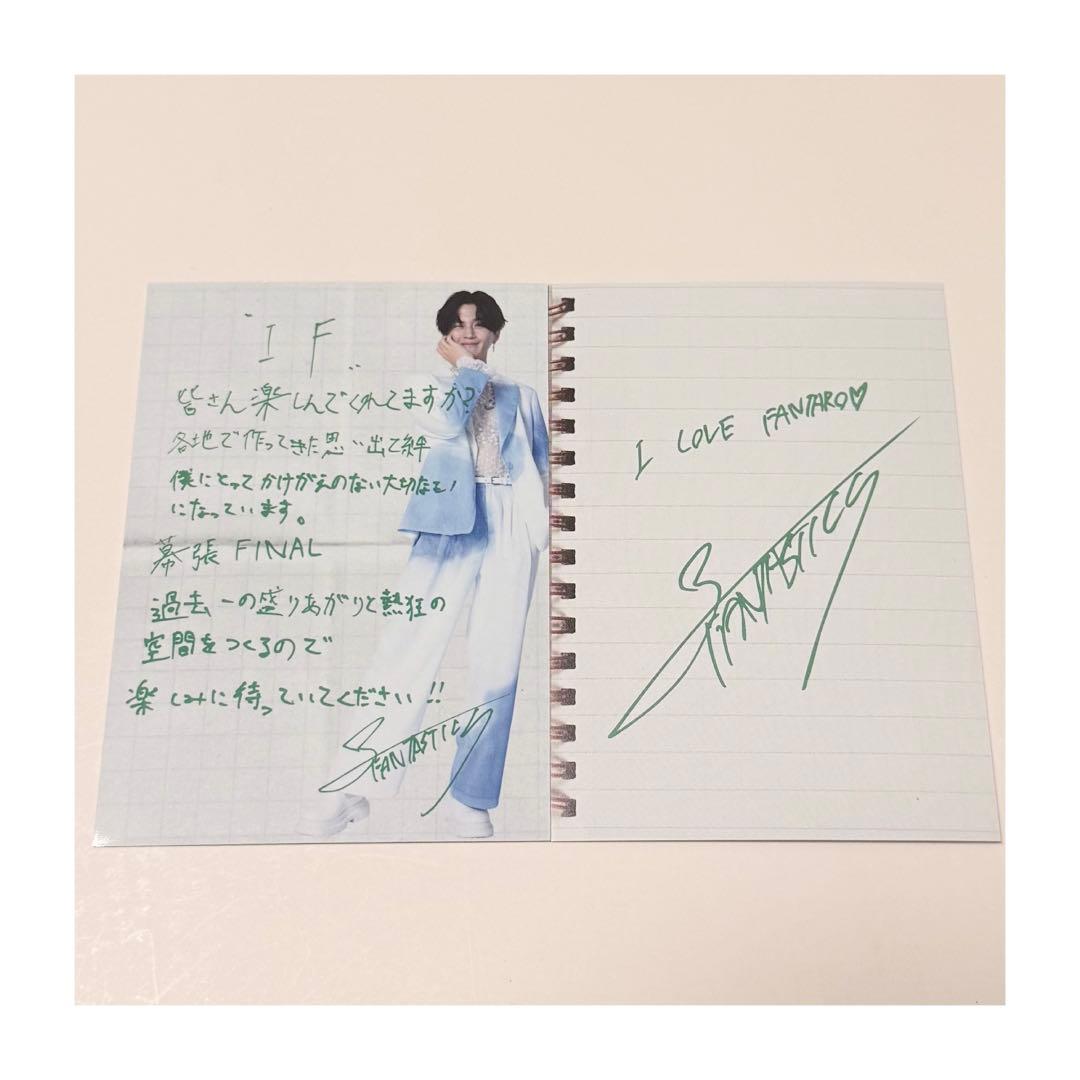 "IF"
皆さん楽しんでくれてますか?
各地で作ってきた思い出て絆
僕にとってかけがえのない大切なモノ
になっています。
幕張 FINAL
過去一の盛りあがりと熱狂の
空間をつくるので
楽しみに待っていてください!!
FANTASTICS
I LOVE FANTARO♡
FANTASTICS